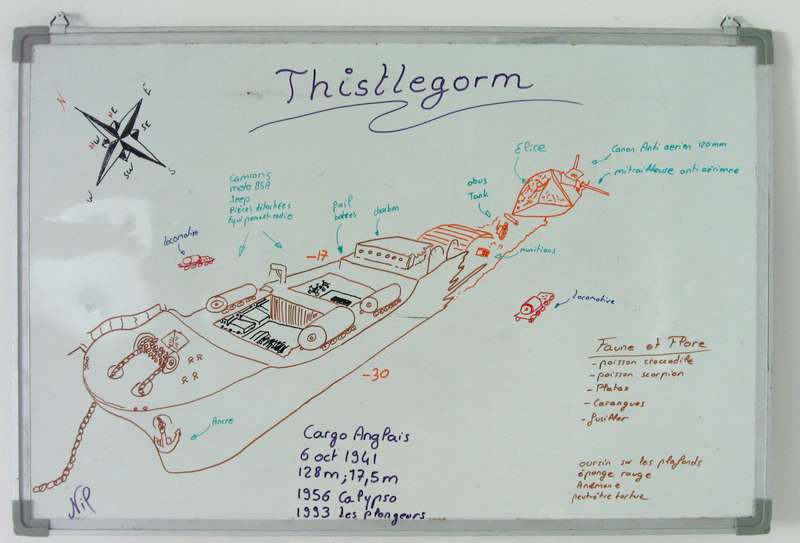 Thistlegorm
N
NE
E
SE
S
SW
W
NW
Elice
Canon Anti aerien 120mm
mitrailleuse anti aérienne
Camions
moto BSA
Jeep
Pièces détachées
Equipement radio
obus
Tank
munitions
charbon
locomotive
-17
locomotive
-30
Ancre
Faune et Flore
- poisson croccodile
- poisson scorpion
- Platax
- Carangues
- fusilier
oursin sur les plafonds
éponge rouge
Anémone
peut-être tortue
Cargo Anglais
6 oct 1941
128m ; 17,5m
1956 Calypso
1993 les plongeurs
Nip